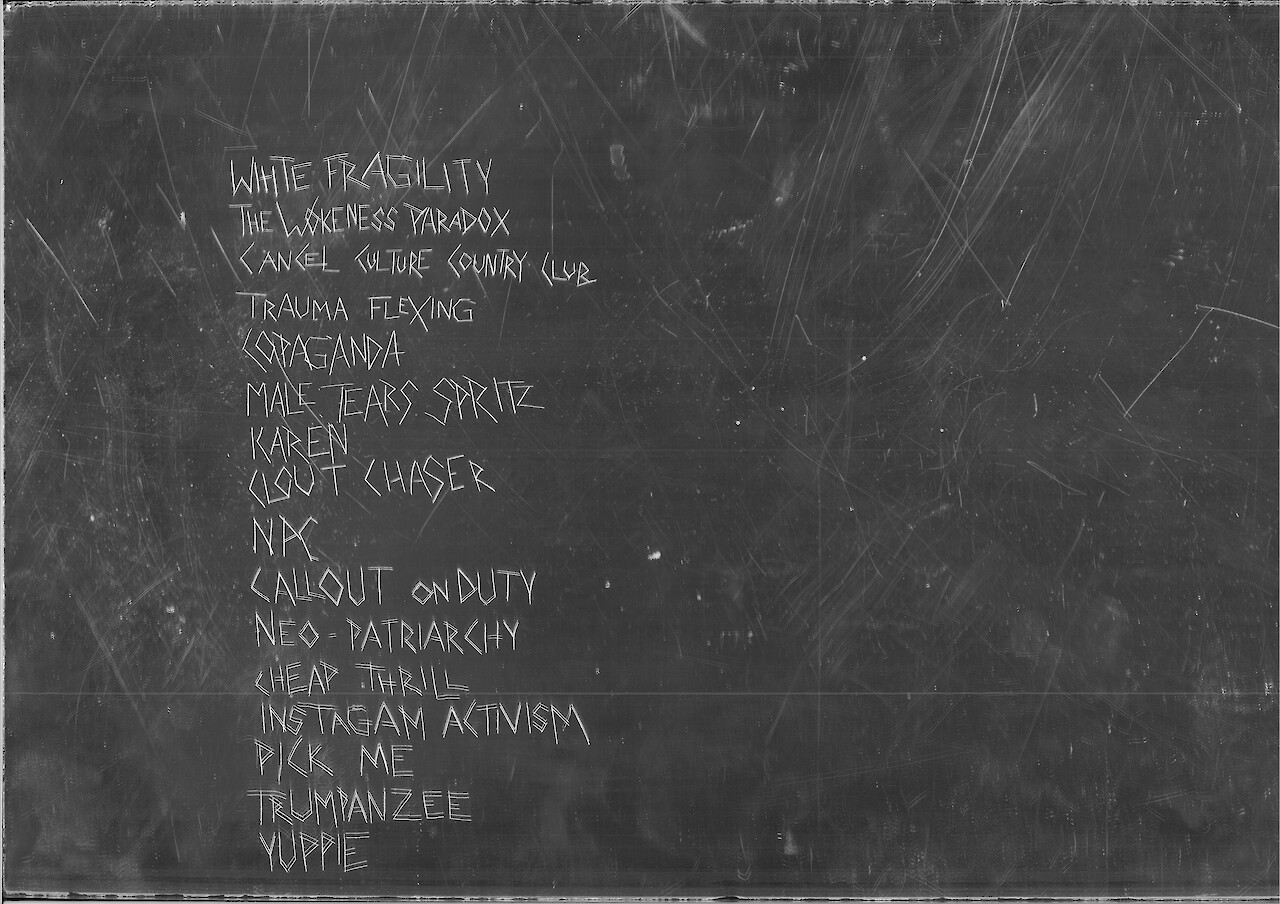 WHITE FRAGILITY
THE WOKENESS PARADOX
CANCEL CULTURE COUNTRY CLUB
TRAUMA FLEXING
COPAGANDA
MALE TEARS SPRITZ
KAREN
CLOUT CHASER
NPC
CALLOUT ON DUTY
NEO-PATRIARCHY
CHEAP THRILL
INSTAGAM ACTIVISM
PICK ME
TRUMPANZEE
YUPPIE